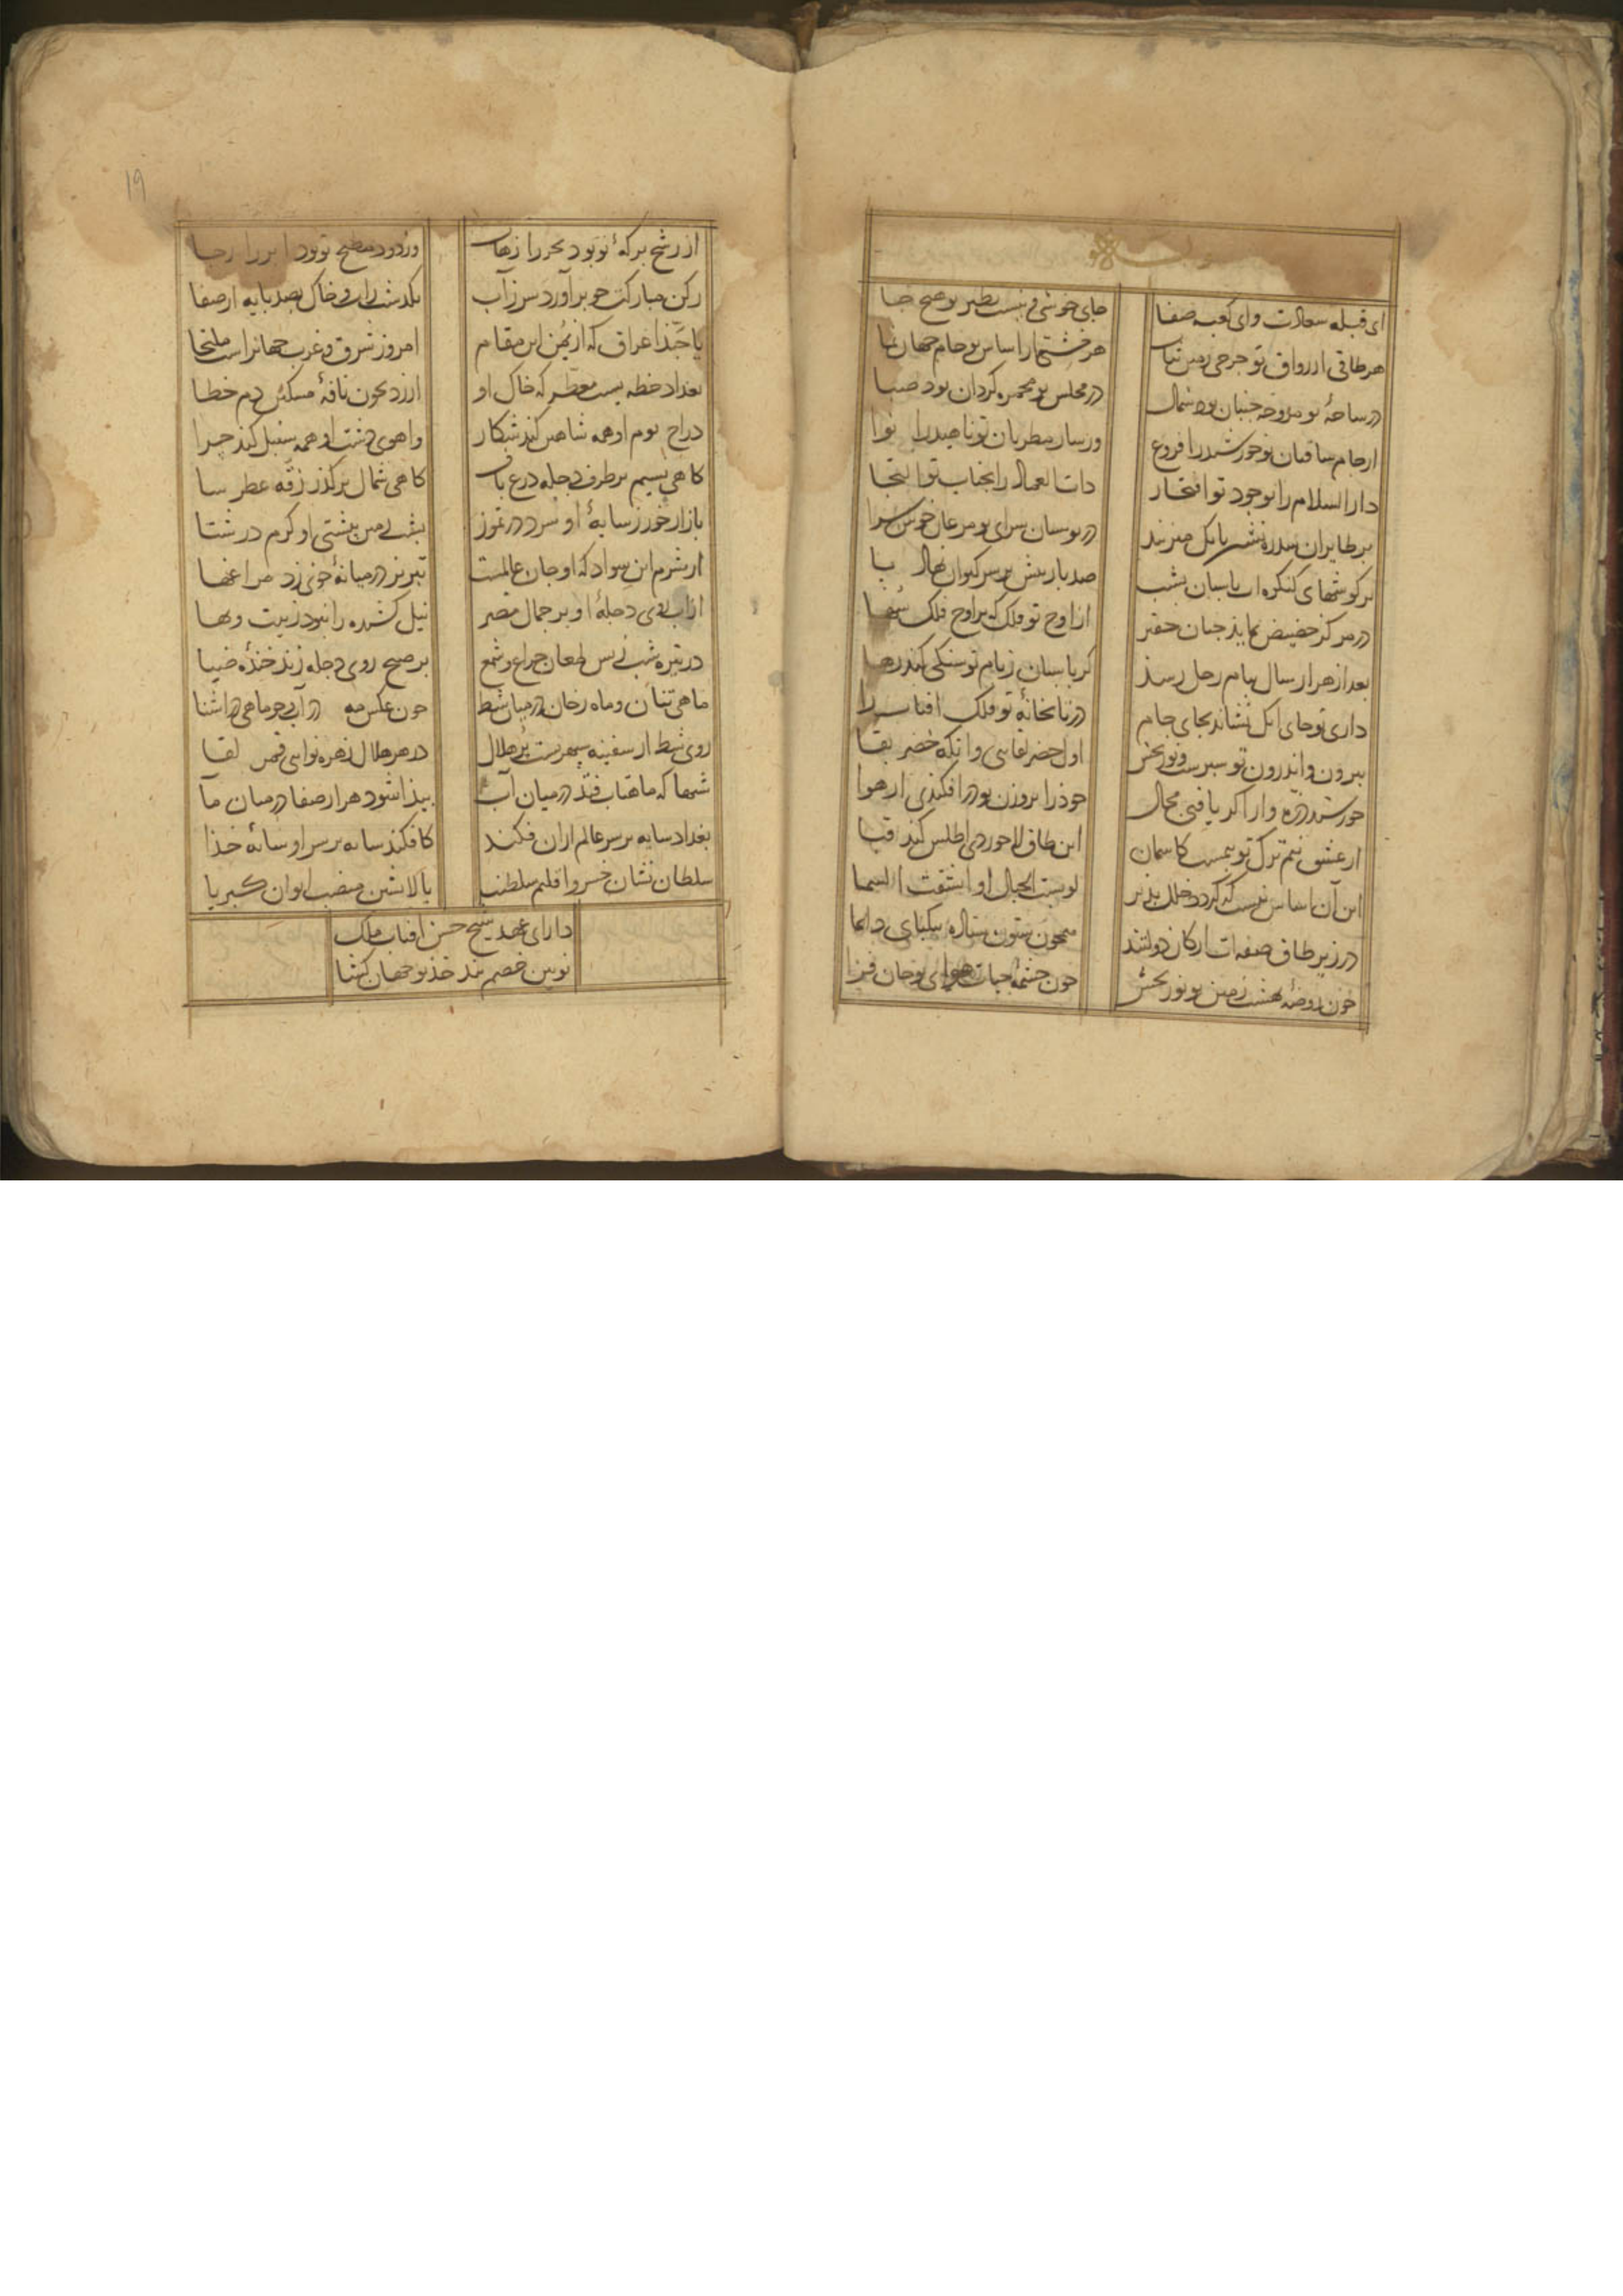 ای قبله سعادت و ای کعبه صفا جای خوشی و نیست نظیر تو هیچ جا
هر طاقی از رواق تو چرخی زمین ثبات هر خشتی از اساس تو جام جهان نما
در ساحهٔ تو مروحه جنبان بود شمال در مجلس تو مجمره گردان بود صبا
از جام ساقیان تو خورشید را فروغ وز ساز مطربان تو ناهید را نوا
دار السلام را بوجود تو افتخار ذات العماد را بجناب تو التجا
بر طایران سدره نشین بانک میزنند در بوستان سرای تو مرغان خوش سرا
بر گوشهای کنکره ات پاسبان بشب صد بار بیش بر سر کیوان نهاد پا
در مرکز حضیض نماید چنان حقیر از اوج تو فلک که بر اوج فلک سها
بعد از هزار سال ببام زحل رسد گر پاسبان ز بام تو سنگی کند رها
داری تو جای انک نشاند بجای جام در تابخانهٔ تو فلک افتاب را
بیرون و اندرون تو سبزست و نوربخش اول خضر لقایی و انکه خضر بقا
خورشید ذره وار اگر یافتی مجال خود را بروزن تو در افکندی از هوا
از عشق نیم ترک تو بیمست کاسمان این طاق لاجوردی اطلس کند قبا
این آن اساس نیست که گردد خلل پذیر لو بست الجبال او انشقت السما
در زیر طاق صفه ات ارکان دولتند همچون ستون ستاده بیکپای دایما
چون روضهٔ بهشت زمین تو نوربخش چون چشمهٔ حیات هوای تو جان فزا
۱۹
از رشح برکهٔ تو بود بحر را زهاب وز دود مطبخ تو بود ابر را رجا
رکن مبارکت چو برآورد سر ز آب بگذشت از روی خاک بصد پایه از صفا
یا حبذا عراق که از یمن این مقام امروز شرق و غرب جهانراست ملتجا
بغداد خطه ییست معطر که خاک او ارزد بخون نافهٔ مشکین دم خطا
دراج بوم او همه شاهین کند شکار و اهوی دشت او همه سنبل کند چرا
گاهی نسیم بر طرف دجله درع باف گاهی شمال بر گذر رقه عطر سا
بازار خور ز سایهٔ او سرد در تموز پشت زمین ز پشتی او گرم در شتا
از شرم این سواد که او جان عالمست تبریز در میانهٔ خوی زد مراغها
از اب روی دجلهٔ او بر جمال مصر نیل کشیده را نبود زینت و بها
در تیره شب ز بس لمعان چراغ و شمع بر صبح روی دجله زند خندهٔ ضیا
ماهی تنان و ماه رخان در میان شط چون عکس مه در آب چو ماهی در اشنا
روی شط از سفینه سپهریست پر هلال در هر هلال زهره نوایی قمر لقا
شبها که ماهتاب فتد در میان آب پیدا شود هزار صفا در میان مآ
بغداد سایه بر سر عالم ازان فکند کافکند سایه بر سر او سایهٔ خدا
سلطان نشان خسرو اقلیم سلطنت بالا نشین منصب ایوان کبریا
دارای عهد شیخ حسن افتاب ملک
نویین خصم بند خدیو جهان گشا